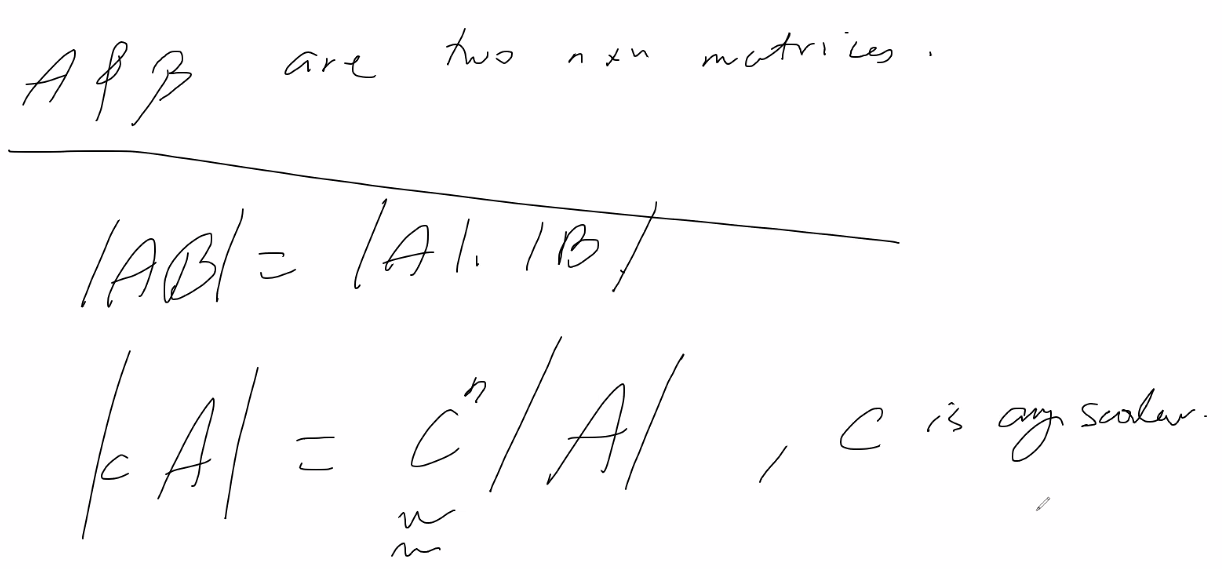 A & B are two n×n matrices.
|AB| = |A|. |B|
|cA| = cⁿ |A| , c is any scalar.